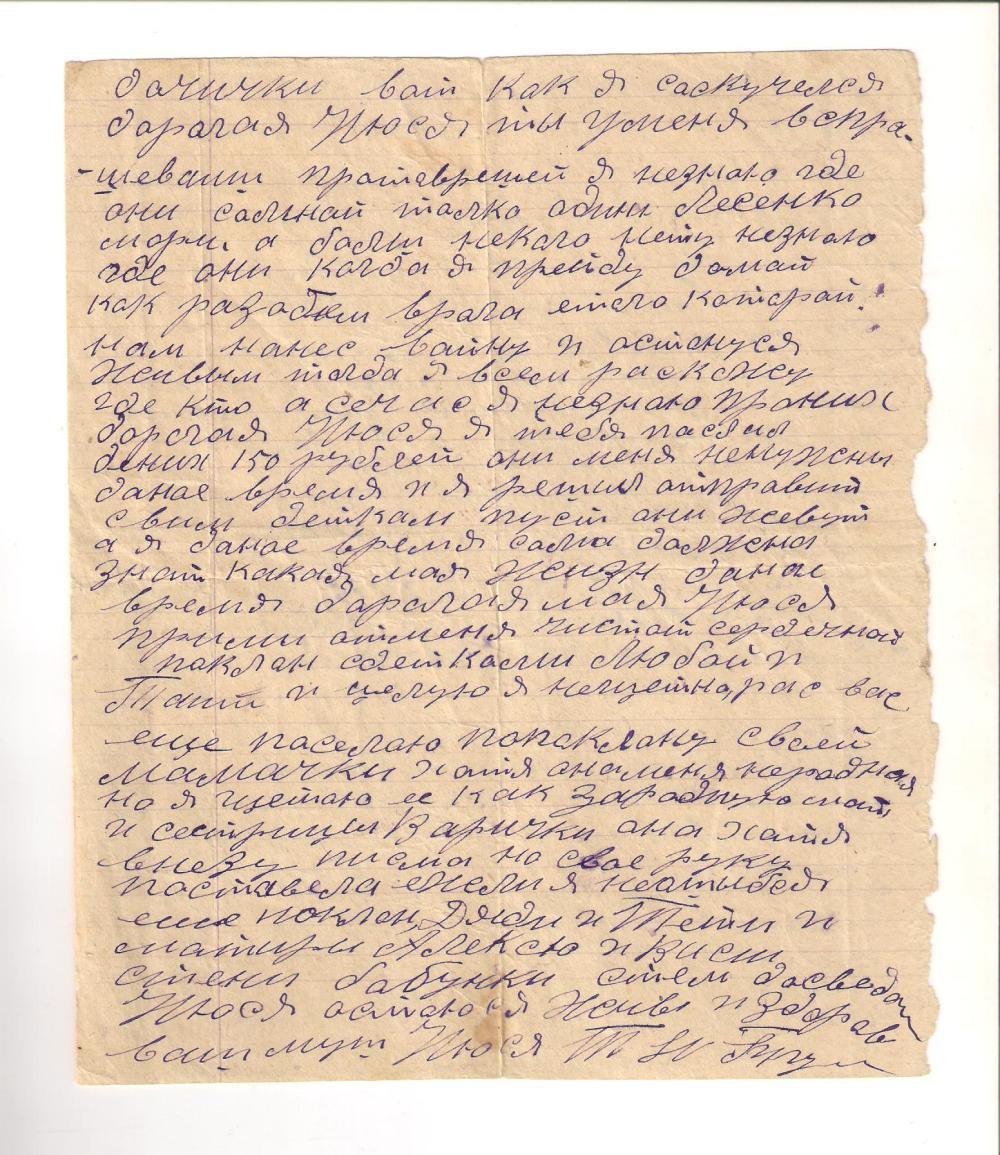 дочички вот как я саскучелся
дарагая Нюся ты уменя вспра-
-шеваиш пратаврещей я незнаю где
они самной толко один Лесенко
мори а болш некаго нету незнаю
где они когда я прейду дамай
как разобем врага етаго катарай
нам нанес вайну и остануся
живым тогда я всем раскажу
где кто а сечас я незнаю праних
дорогая Нюся я тебя паслал
дених 150 рублей они меня ненужны
даное время и я решил отправит
своим деткам пуст они живут
а я даное время сама далжна
знат какая мая жизн данае
время дарагая мая Нюся
прими отменя чистай сердечнай
паклан сдетками Любай и
Таит и целую я нещетна рас вас
еще паселаю попаклану своей
мамачки хатя анаменя народная
но я щетаю ее как зародную мат
и сестрицы Варички она хатя
внезу писма но свое руку
поставела ежели я неатыбся
еще паклан Дяди и Тети и
матири Алексю и
стени бабунки стем досведан
Нюся остаюся живы и здарав
ваш муш Нюся Т